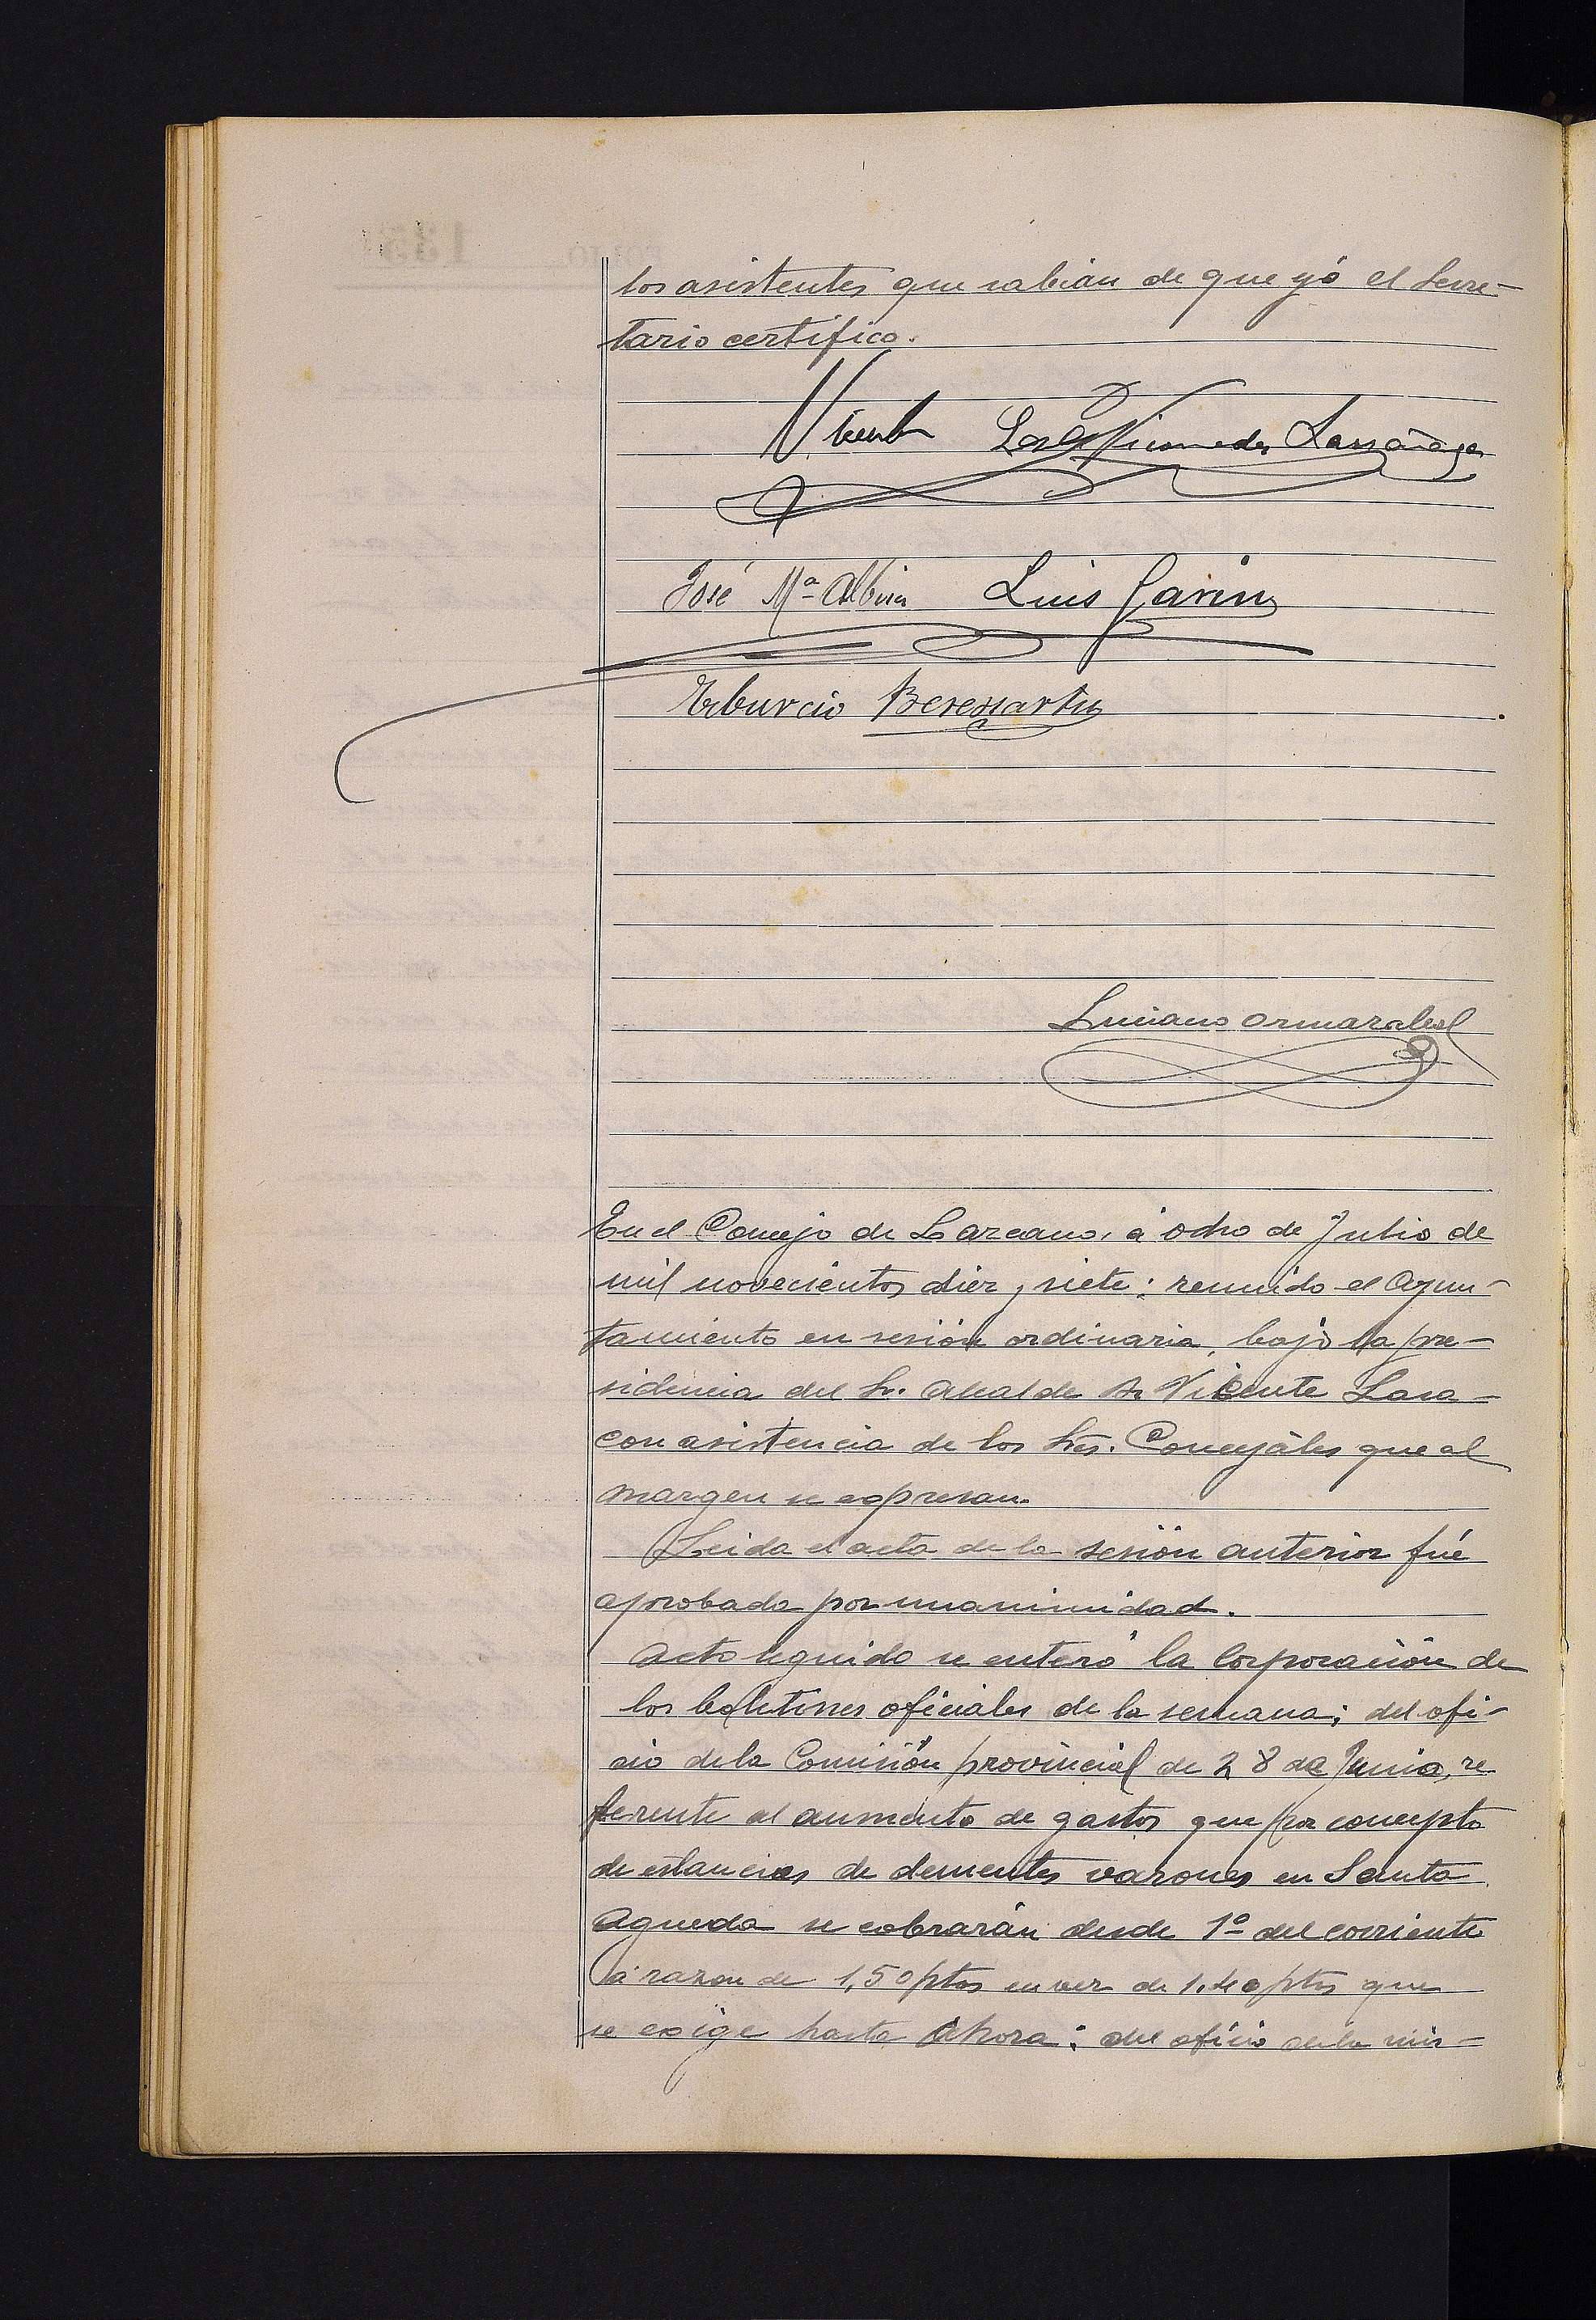 los asistentes que sabián de que yó el Secre-
tario certifico.
Vicente Lasa Nicomedes Larrañaga
José Mª Albisu Luis Garin
Tiburcio Berezartu
Luciano Ormazabal
En el Concejo de Lazcano, á ocho de Julio de
mil novecientos diez y siete: reunido el Ayun-
tamiento en sesión ordinaria, bajo la pre-
sidencia del Sr. Alcalde Dn Vicente Lasa
con asistencia de los Srés. Concejáles que al
margen se expresan.
Leida el acta de la sesión anterior fué
aprobada por unanimidad.
Acto seguido se enteró la Corporación de
los boletines oficiales de la semana; del ofi-
cio de la Comisión provincial de 28 de Junio, re
ferente al aumento de gastos que por concepto
de estancias de dementes varones en Santa
Agueda se cobrarán desde 1º del corriente
á razon de 1,50 ptas en vez de 1,40 ptas que
se exige hasta ahora: del oficio de la mis-